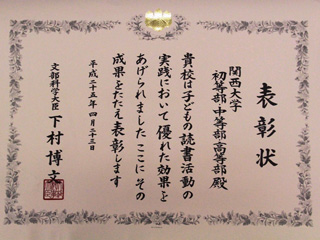 表彰状
関西大学
初等部・中等部・高等部殿
貴校は子どもの読書活動の
実践において優れた効果を
あげられました ここにその
成果をたたえ表彰します
平成二十五年四月二十三日
文部科学大臣 下村博文